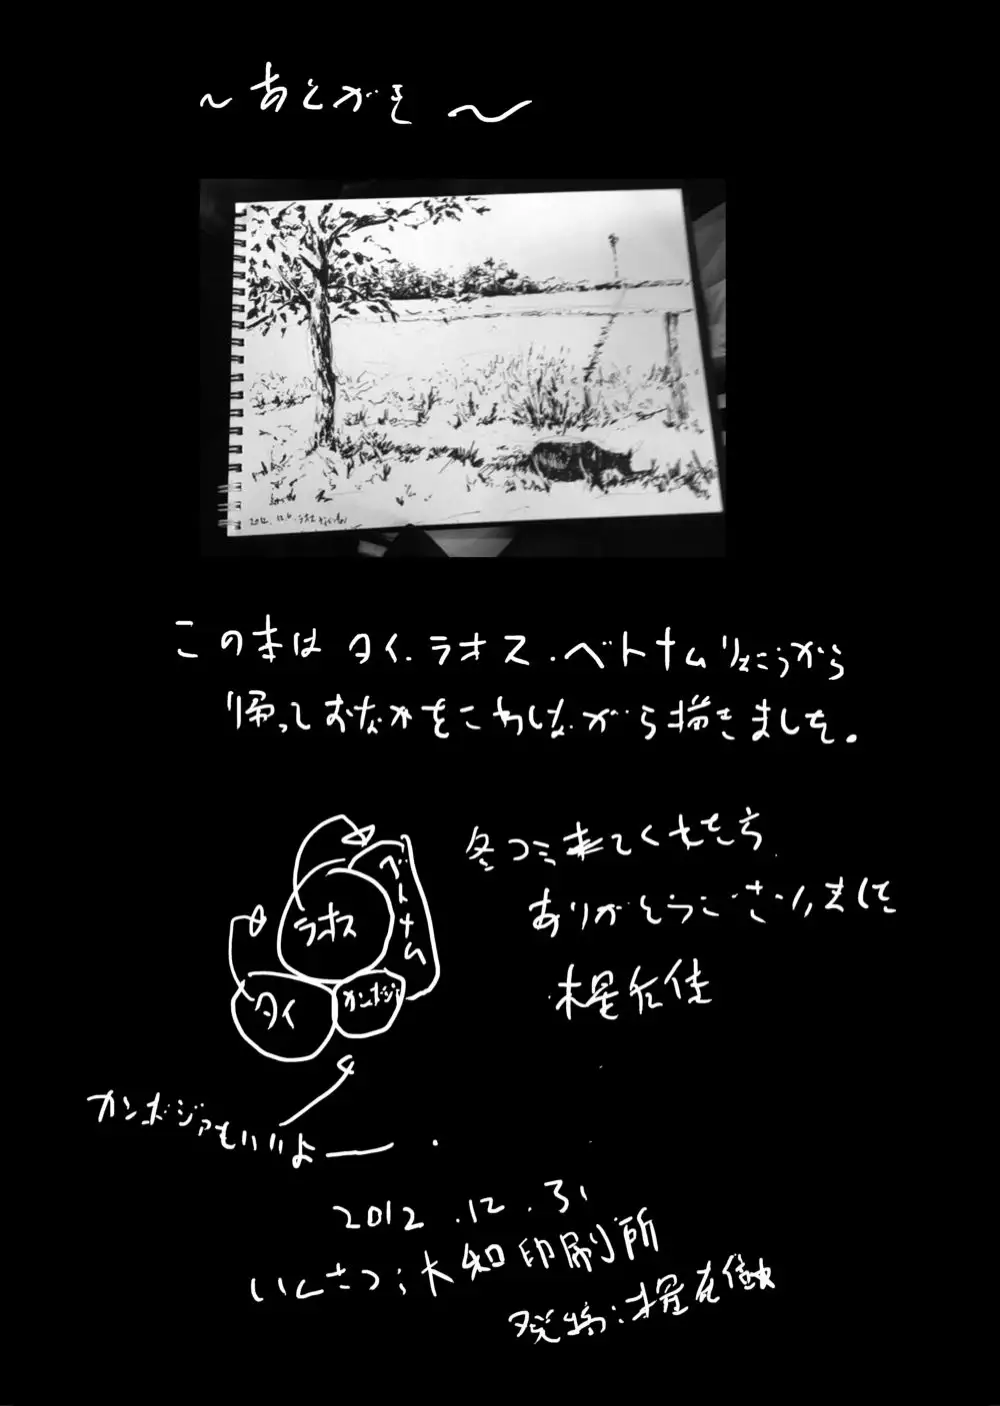 ～あとがき～
この本は タイ.ラオス.ベトナムりょこうから
帰っておなかをこわしながら描きました。
冬コミ来てくれた方
ありがとうございました
ベトナム
ラオス
タイ
カンボジア
カンボジアもいいよー
2012.12.31
いんさつ:大知印刷所
発行: